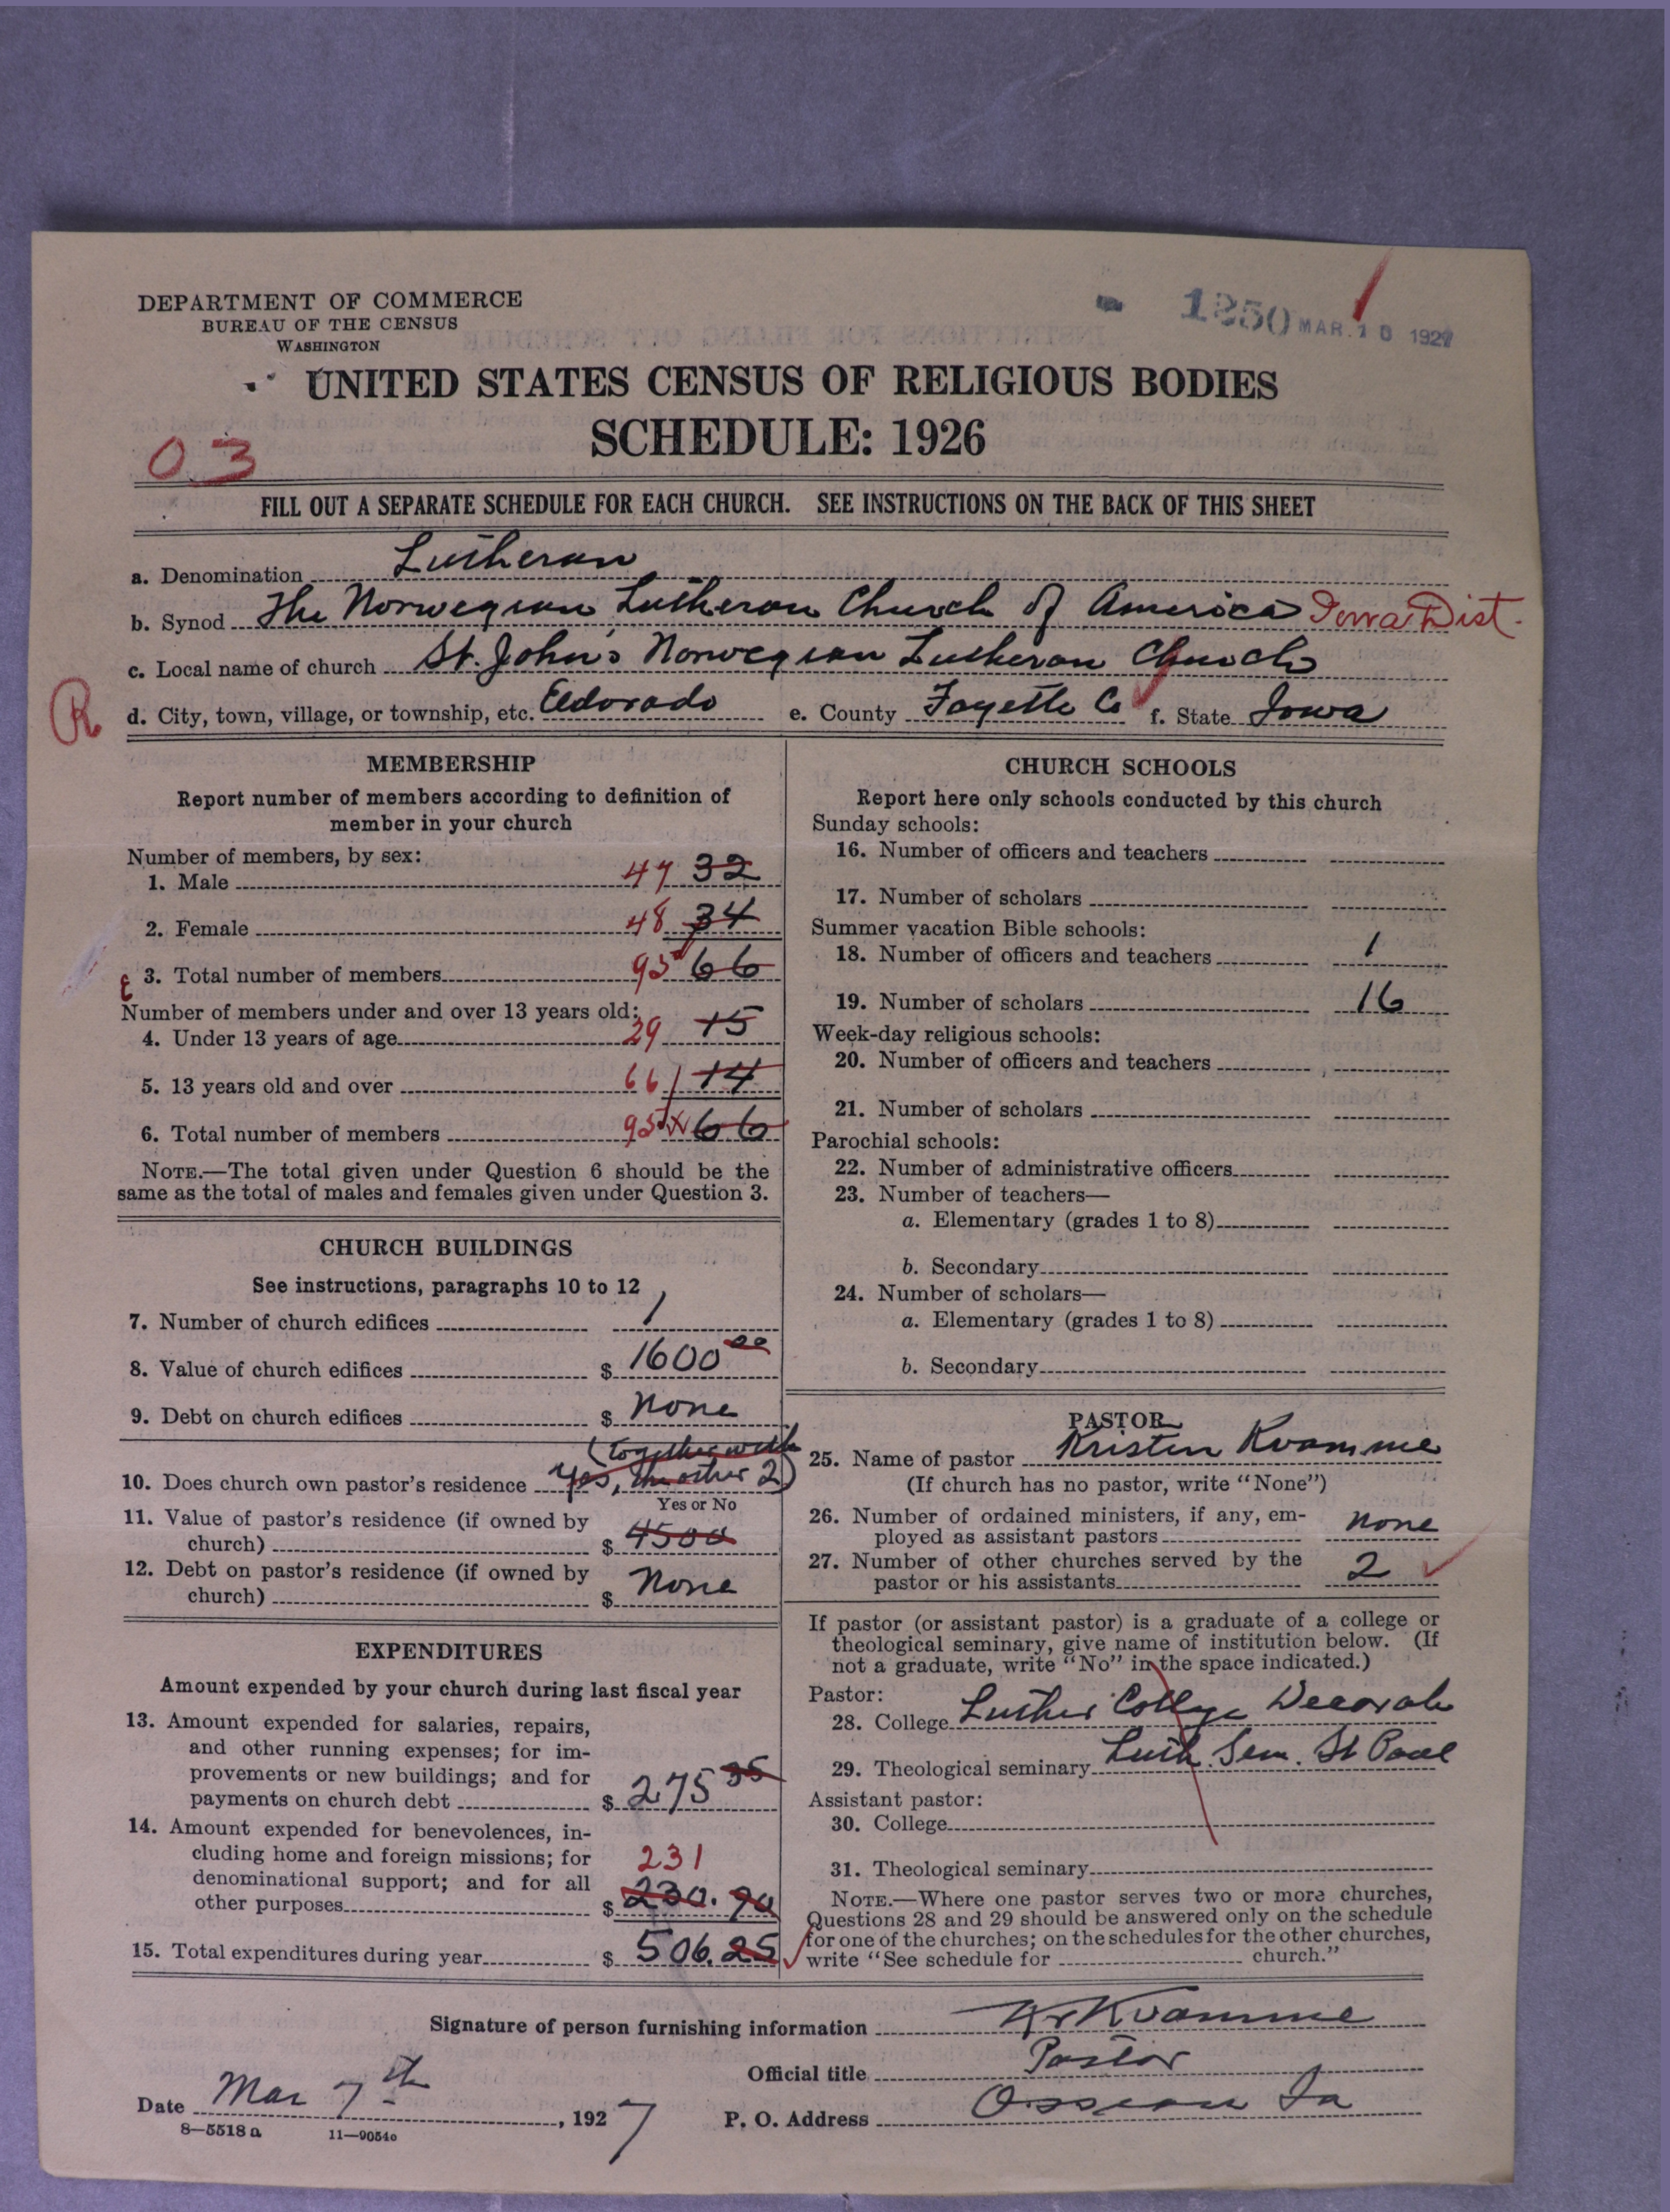 DEPARTMENT OF COMMERCE
BUREAU OF THE CENSUS
WASHINGTON
1250 MAR. 10 1927
UNITED STATES CENSUS OF RELIGIOUS BODIES
SCHEDULE: 1926
03
FILL OUT A SEPARATE SCHEDULE FOR EACH CHURCH. SEE INSTRUCTIONS ON THE BACK OF THIS SHEET
a. Denomination Lutheran
b. Synod The Norwegian Lutheran Church of America Iowa Dist.
c. Local name of church St. John's Norwegian Lutheran Church
R
d. City, town, village, or township, etc. Eldorado e. County Fayette Co f. State Iowa
MEMBERSHIP
Report number of members according to definition of
member in your church
Number of members, by sex:
1. Male 47 32
2. Female 48 34
3. Total number of members 95 66
Number of members under and over 13 years old:
4. Under 13 years of age 29 15
5. 13 years old and over 66 14
6. Total number of members 95 66
NOTE.—The total given under Question 6 should be the
same as the total of males and females given under Question 3.
CHURCH BUILDINGS
See instructions, paragraphs 10 to 12
7. Number of church edifices 1
8. Value of church edifices $ 1600 00
9. Debt on church edifices $ None
(together with
10. Does church own pastor's residence Yes, the other 2)
Yes or No
11. Value of pastor's residence (if owned by
church) $ 4500
12. Debt on pastor's residence (if owned by
church) $ None
EXPENDITURES
Amount expended by your church during last fiscal year
13. Amount expended for salaries, repairs,
and other running expenses; for im-
provements or new buildings; and for
payments on church debt $ 275 35
14. Amount expended for benevolences, in-
cluding home and foreign missions; for
denominational support; and for all
231
other purposes $ 230.90
15. Total expenditures during year $ 506.25
CHURCH SCHOOLS
Report here only schools conducted by this church
Sunday schools:
16. Number of officers and teachers
17. Number of scholars
Summer vacation Bible schools:
18. Number of officers and teachers 1
19. Number of scholars 16
Week-day religious schools:
20. Number of officers and teachers
21. Number of scholars
Parochial schools:
22. Number of administrative officers
23. Number of teachers—
a. Elementary (grades 1 to 8)
b. Secondary
24. Number of scholars—
a. Elementary (grades 1 to 8)
b. Secondary
PASTOR
25. Name of pastor Kristen Kvamme
(If church has no pastor, write "None")
26. Number of ordained ministers, if any, em-
ployed as assistant pastors None
27. Number of other churches served by the
pastor or his assistants 2
If pastor (or assistant pastor) is a graduate of a college or
theological seminary, give name of institution below. (If
not a graduate, write "No" in the space indicated.)
Pastor:
28. College Luther College Decorah
29. Theological seminary Luth. Sem. St Paul
Assistant pastor:
30. College
31. Theological seminary
NOTE.—Where one pastor serves two or more churches,
Questions 28 and 29 should be answered only on the schedule
for one of the churches; on the schedules for the other churches,
write "See schedule for church."
Signature of person furnishing information Kr Kvamme
Official title Pastor
Date Mar 7th, 1927 P. O. Address Ossian Ia
8—5518a 11—9054c